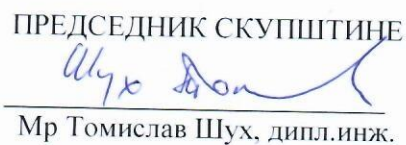 ПРЕДСЕДНИК СКУПШТИНЕ
Шух
Мр Томислав Шух, дипл.инж.